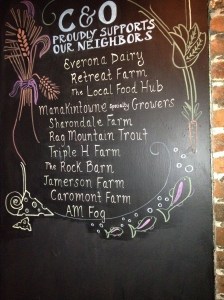 C & O
PROUDLY SUPPORTS
OUR NEIGHBORS
Everona Dairy
Retreat Farm
The Local Food Hub
Manakintowne Specialty Growers
Sherondale Farm
Rag Mountain Trout
Triple H Farm
The Rock Barn
Jamerson Farm
Caromont Farm
AM Fog